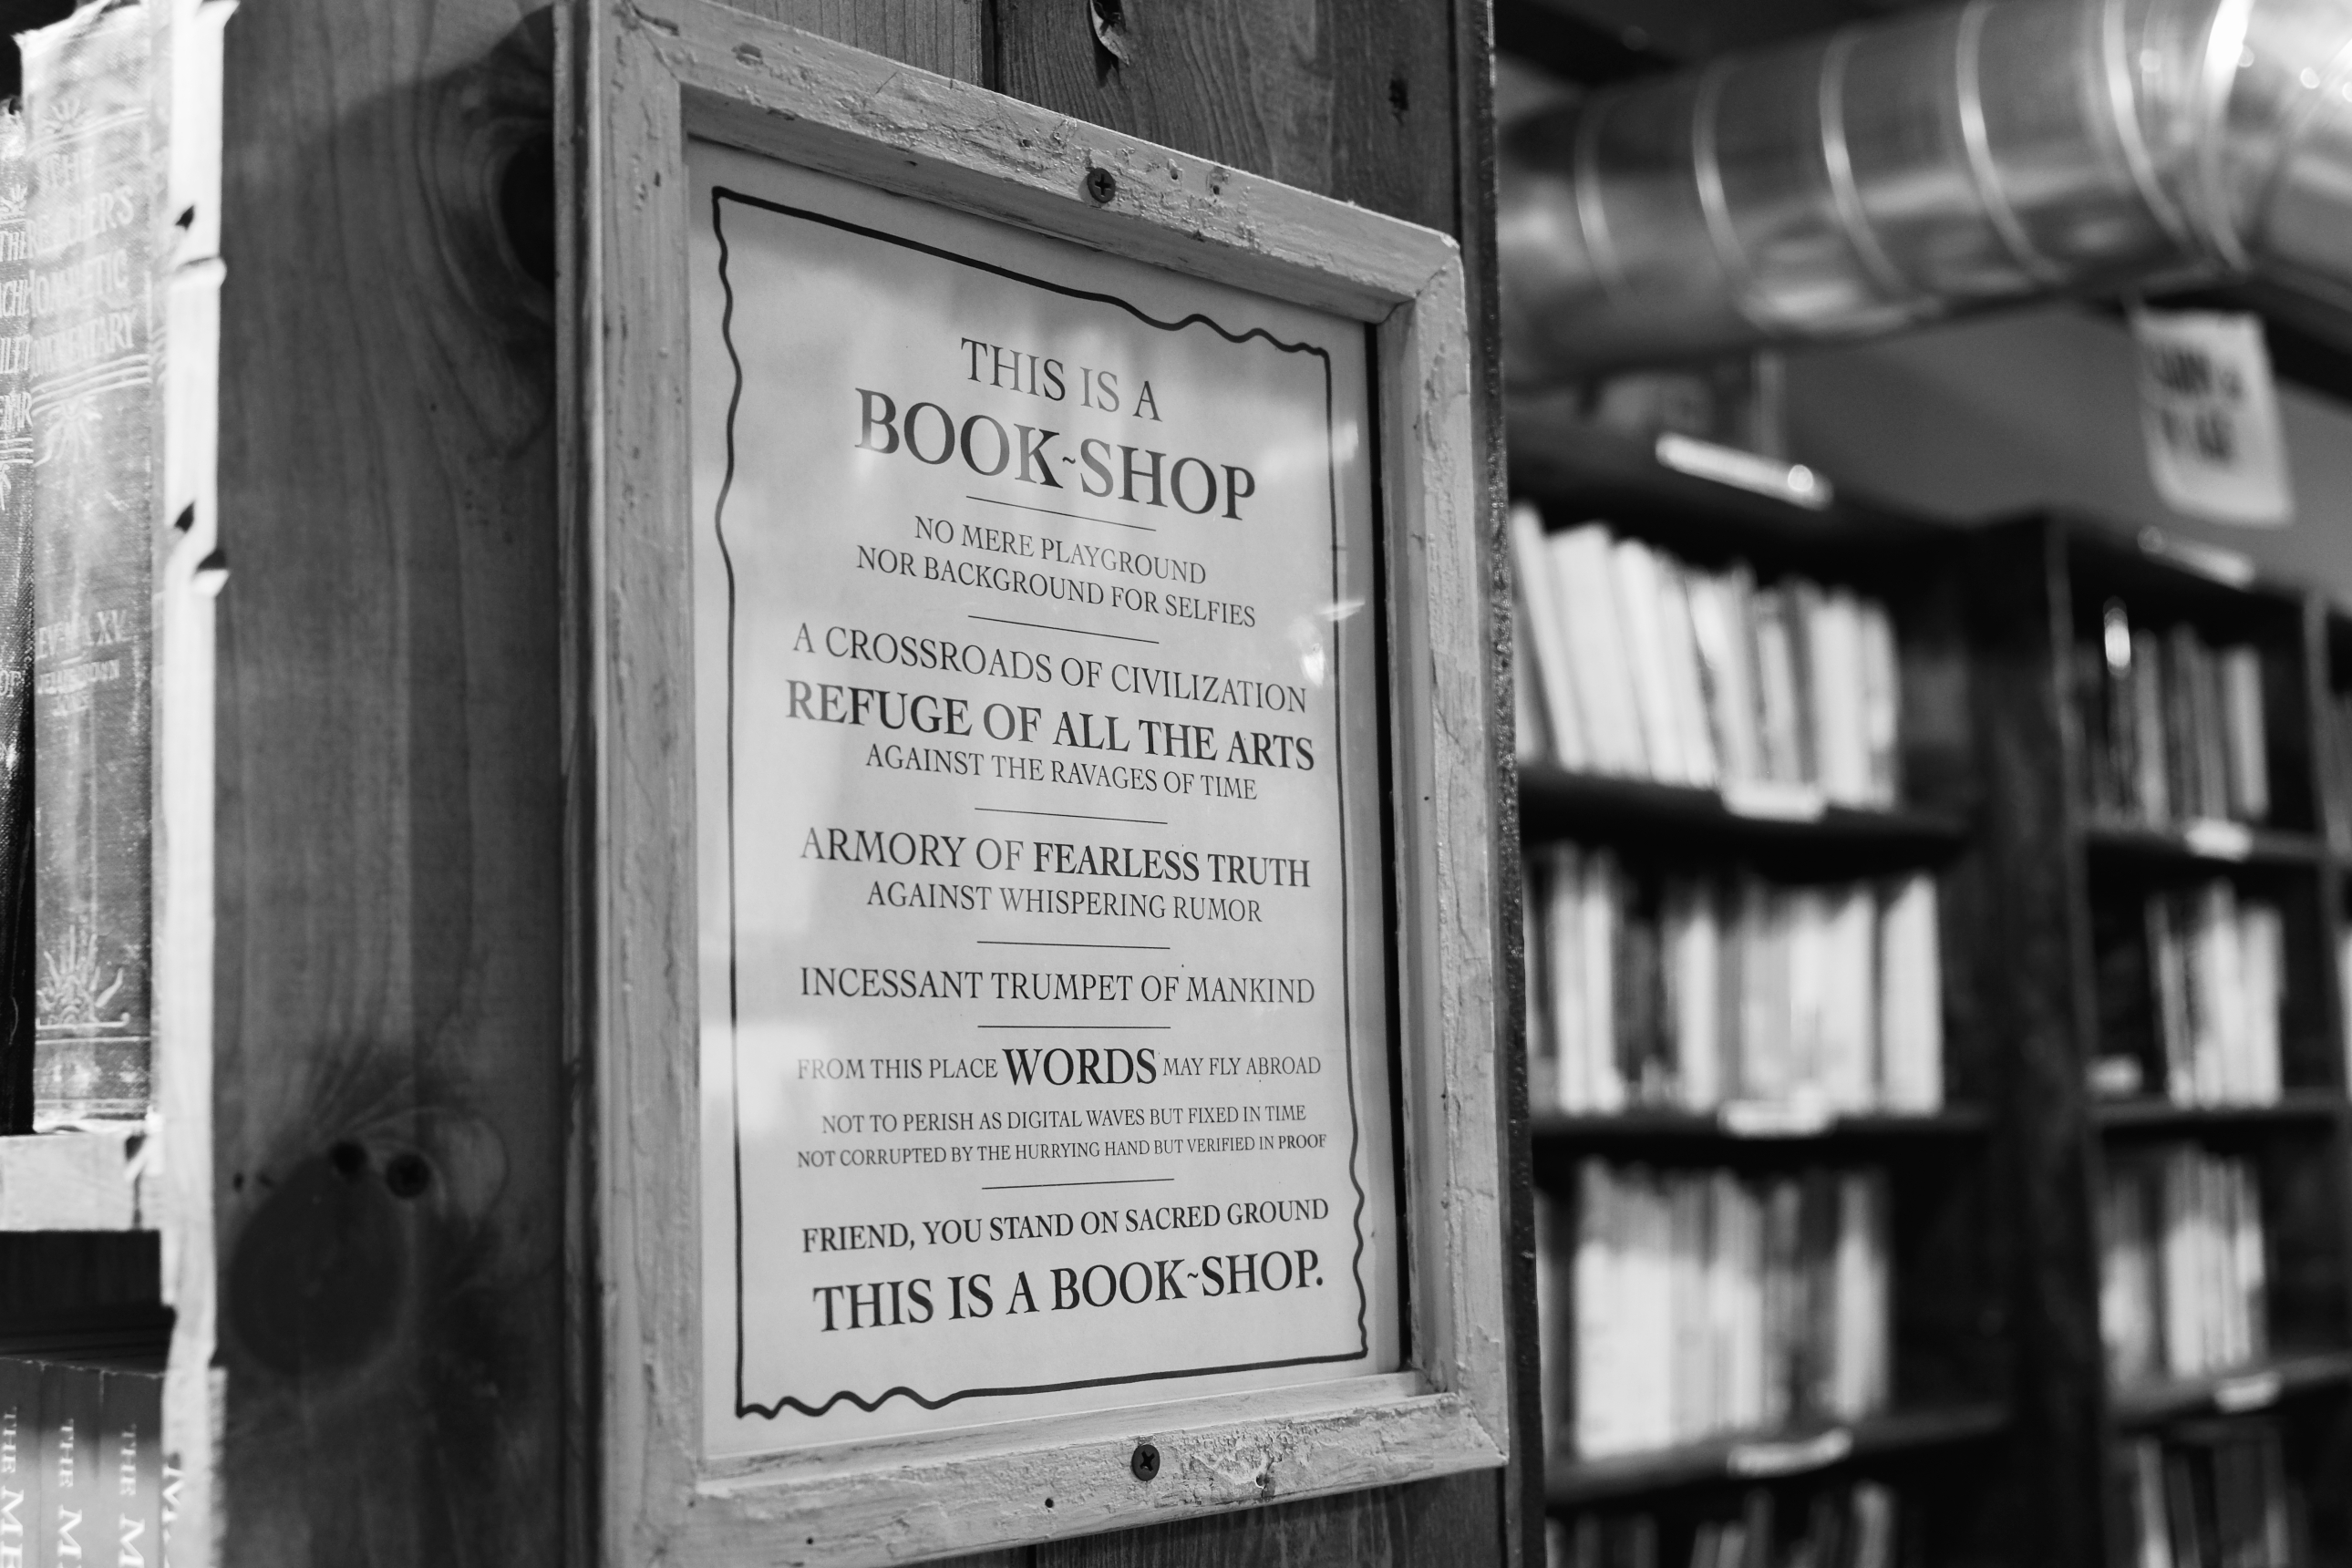 THIS IS A
BOOK~SHOP
NO MERE PLAYGROUND
NOR BACKGROUND FOR SELFIES
A CROSSROADS OF CIVILIZATION
REFUGE OF ALL THE ARTS
AGAINST THE RAVAGES OF TIME
ARMORY OF FEARLESS TRUTH
AGAINST WHISPERING RUMOR
INCESSANT TRUMPET OF MANKIND
FROM THIS PLACE WORDS MAY FLY ABROAD
NOT TO PERISH AS DIGITAL WAVES BUT FIXED IN TIME
NOT CORRUPTED BY THE HURRYING HAND BUT VERIFIED IN PROOF
FRIEND, YOU STAND ON SACRED GROUND
THIS IS A BOOK~SHOP.
THE
THE
THE